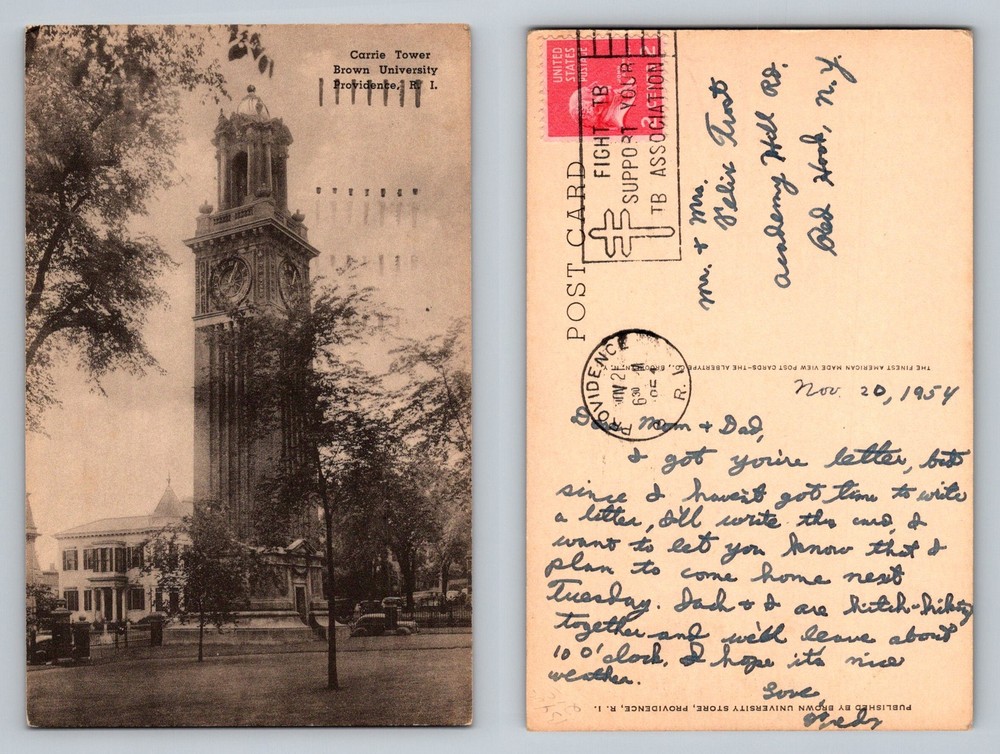 Carrie Tower
Brown University
Providence, R. I.
UNITED STATES POSTAGE
2 2
FIGHT TB
SUPPORT YOUR
TB ASSOCIATION
POST CARD
Mr. + Mrs.
Felix Trost
Academy Hill Rd.
Red Hook, N.Y.
THE FINEST AMERICAN MADE VIEW POST CARDS—THE ALBERTYPE CO., BROOKLYN, N. Y.
PROVIDENCE
NOV 2
6 30
R. I.
Nov. 20, 1954
Dear Mom + Dad,
I got you're letter, but
since I haven't got time to write
a letter, I'll write this card, I
want to let you know that I
plan to come home next
Tuesday. Jack + I are hitch-hiking
together and we'll leave about
10 o'clock. I hope it's nice
weather.
Love,
PUBLISHED BY BROWN UNIVERSITY STORE, PROVIDENCE, R. I.